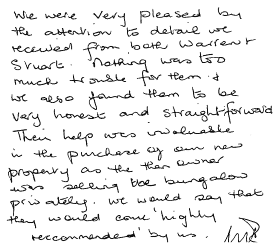 We were very pleased by
the attention to detail we
received from both Warren &
Stuart. Nothing was too
much trouble for them &
we also found them to be
very honest and straightforward
Their help was invaluable
in the purchase of our new
property as the then owner
was selling the bungalow
privately. We would say that
they would come 'highly
recommended' by us.